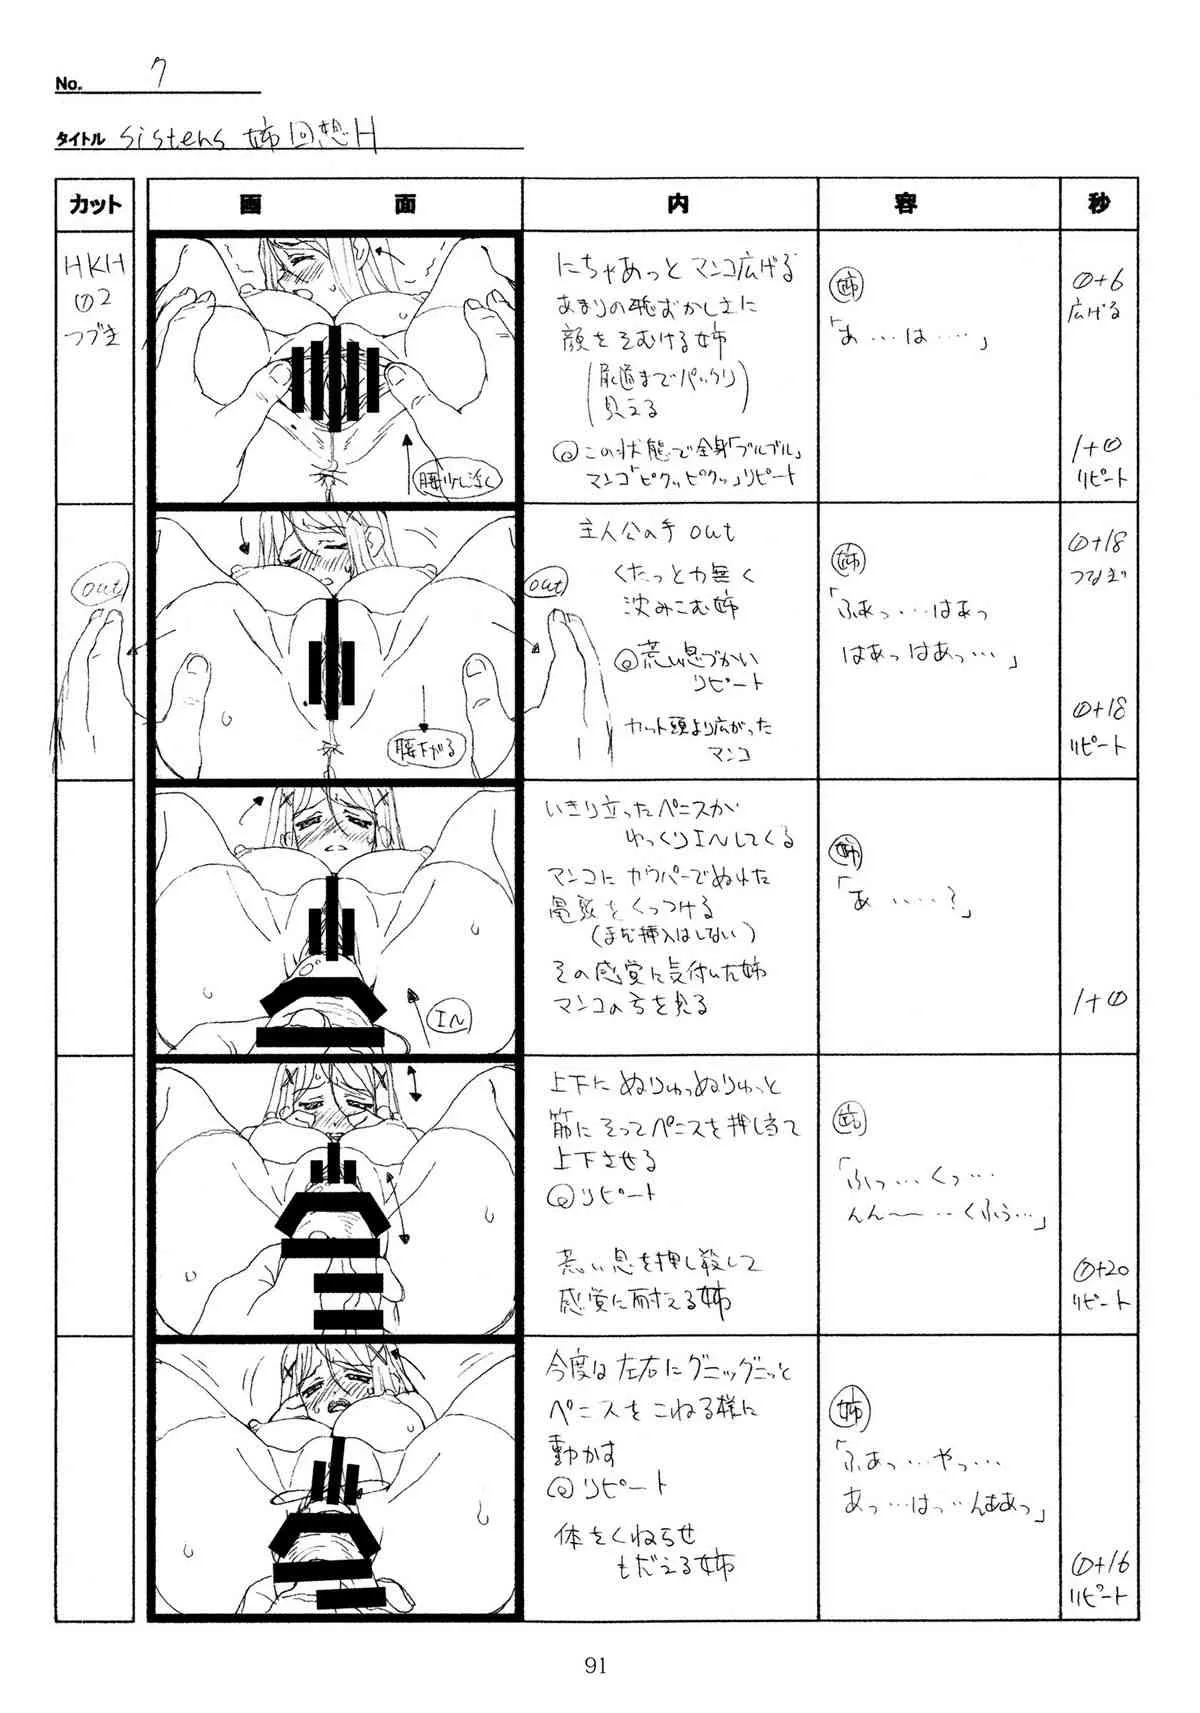 No. 7
タイトル sisters 姉回想H
カット 画面 内容 秒
HKH
①2
つづき
腰少し浮く
にちゃあっとマンコ広げる
あまりの恥ずかしさに
顔をそむける姉
(尿道までパックリ
見える)
◎この状態で全身「ブルブル」
マンコ「ピクッピクッ」リピート
姉
「あ…は……」
①+6
広げる
1+①
リピート
out
腰下がる
out
主人公の手 out
くたっと力無く
沈みこむ姉
◎荒い息づかい
リピート
カット頭より広がった
マンコ
姉
「ふあっ…はあっ
はあっはあっ…」
①+18
つなぎ
①+18
リピート
IN
いきり立ったペニスが
ゆっくりINしてくる
マンコにカウパーでぬれた
亀頭をくっつける
(まだ挿入はしない)
その感覚に気付いた姉
マンコの方を見る
姉
「あ……?」
1+①
上下にぬりゅっぬりゅっと
筋にそってペニスを押し当て
上下させる
◎リピート
荒い息を押し殺して
感覚に耐える姉
「ふっ…くっ…
んん〜〜‥くふぅ…」
①+20
リピート
今度は左右にグニッグニッと
ペニスをこねる様に
動かす
◎リピート
体をくねらせ
もだえる姉
姉
「ふあっ…やっ…
あっ…はっ‥んああっ」
①+16
リピート
91